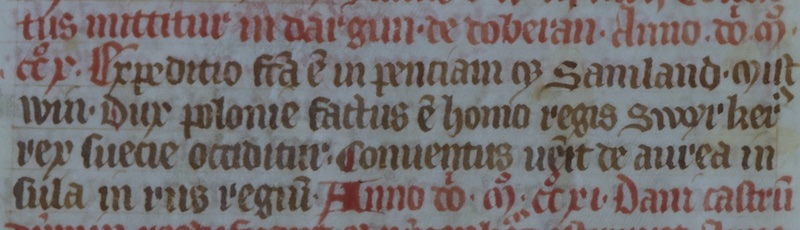 tus mittitur in dargun · de doberan · Anno · do̅ · M̊ ·
cc̊ x · Expeditio fc̅a e̅ in penciam et Samland · Mist
win · Dux polonie factus e̅ homo regis Swyrker
rex suecie occiditur · Conuentus ue̅it de aurea in
sula in rus regiu̅ · Anno do̅ · M̊ · cc̊ xi · Dani castru̅